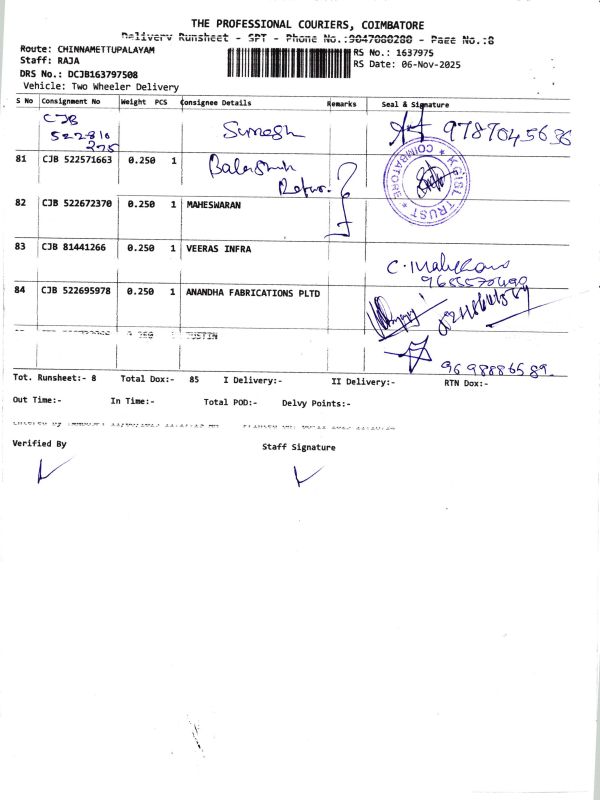 THE PROFESSIONAL COURIERS, COIMBATORE
Delivery Runsheet - SPT - Phone No.:9047080280 - Page No.:8
Route: CHINNAMETTUPALAYAM
RS No.: 1637975
Staff: RAJA
RS Date: 06-Nov-2025
DRS No.: DCJB163797508
Vehicle: Two Wheeler Delivery
S No Consignment No Weight PCS Consignee Details Remarks Seal & Signature
CJB
522810
275
Suresh
9787045636
81 CJB 522571663 0.250 1
KGISL TRUST * COIMBATORE *
82 CJB 522672370 0.250 1 MAHESWARAN
83 CJB 81441266 0.250 1 VEERAS INFRA
C. Maheswari
84 CJB 522695978 0.250 1 ANANDHA FABRICATIONS PLTD
JUSTIN
9698886589
Tot. Runsheet:- 8 Total Dox:- 85 I Delivery:- II Delivery:- RTN Dox:-
Out Time:- In Time:- Total POD:- Delvy Points:-
Verified By
Staff Signature